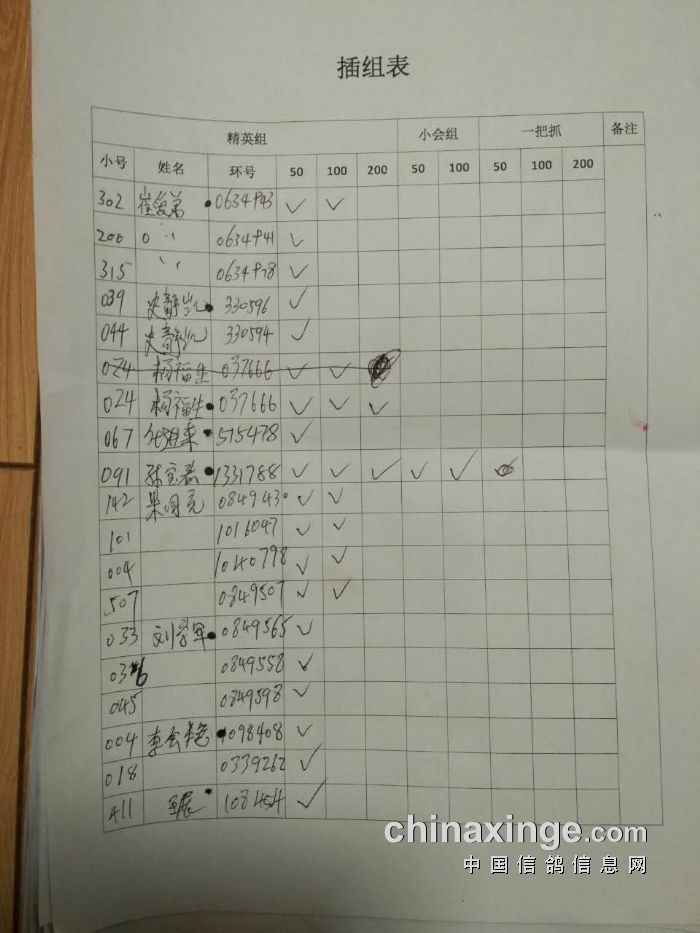 插组表
精英组 小会组 一把抓 备注
小号 姓名 环号 50 100 200 50 100 50 100 200
302 0634943 ✓ ✓
200 〃 0634941 ✓
315 〃 0634978 ✓
039 史静凯 330596 ✓
044 史静凯 330594 ✓
024 杨福生 037666 ✓ ✓
024 杨福生 037666 ✓ ✓ ✓
067 515478 ✓
091 1331788 ✓ ✓ ✓ ✓ ✓
142 0849430 ✓ ✓
101 1016047 ✓ ✓
004 1040798 ✓ ✓
507 0849507 ✓ ✓
033 刘学军 0849565 ✓
0849558 ✓
045 0849598 ✓
004 1098408 ✓
018 0339262 ✓
A11 ✓
chinaxinge.com
中国信鸽信息网